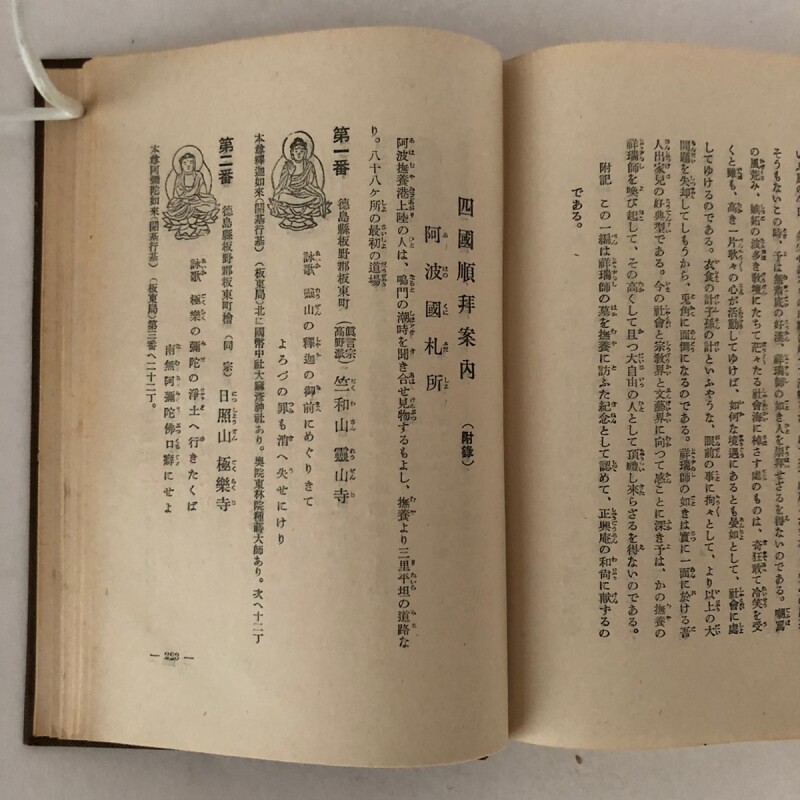 そうもないこの時、予は無爲底の好漢、祥瑞師の如き人を崇拜せざるを得ないのである。嘲罵
の風荒み、嫉妬の波多き敎壇にたちて茫々たる社會海に棹さす處のものは、奇狂敢て冷笑を受
くと雖も、高き一片耿々の心が活動してゆけば、如何な境遇にあるとも晏如として、社會に處
してゆけるのである。衣食の計子孫の計といふやうな、眼前の事に拘々として、より以上の大
問題を失却してしもうから、兎角に面倒になるのである。祥瑞師の如きは實に一面に於ける吾
人出家兒の好典型である。今の社會と宗敎界と文藝界に向つて感ことに深き予は、かの撫養の
祥瑞師を喚び起して、その高くして且つ大自由の人として頂禮し來らざるを得ないのである。
附記 この一編は祥瑞師の墓を撫養に訪ふた紀念として認めて、正興庵の和尙に献ずるの
である。
四國順拜案內 (附錄)
阿波國札所
阿波撫養港上陸の人は、鳴門の潮時を聞き合せ見物するもよし、撫養より三里平坦の道路な
り。八十八ケ所の最初の道場
第一番 德島縣板野郡板東町 (眞言宗高野派) 竺和山 靈山寺
詠歌 靈山の釋迦の御前にめぐりきて
よろづの罪も消へ失せにけり
本尊釋迦如來(開基行基)(板東局)北に國幣中社大麻彥神社あり。奧院東林院種蒔大師あり。次へ十二丁
第二番 德島縣板野郡板東町檜 (同宗) 日照山 極樂寺
詠歌 極樂の彌陀の淨土へ行きたくば
南無阿彌陀佛口癖にせよ
本尊阿彌陀如來(開基行基)(板東局)第三番へ二十二丁。